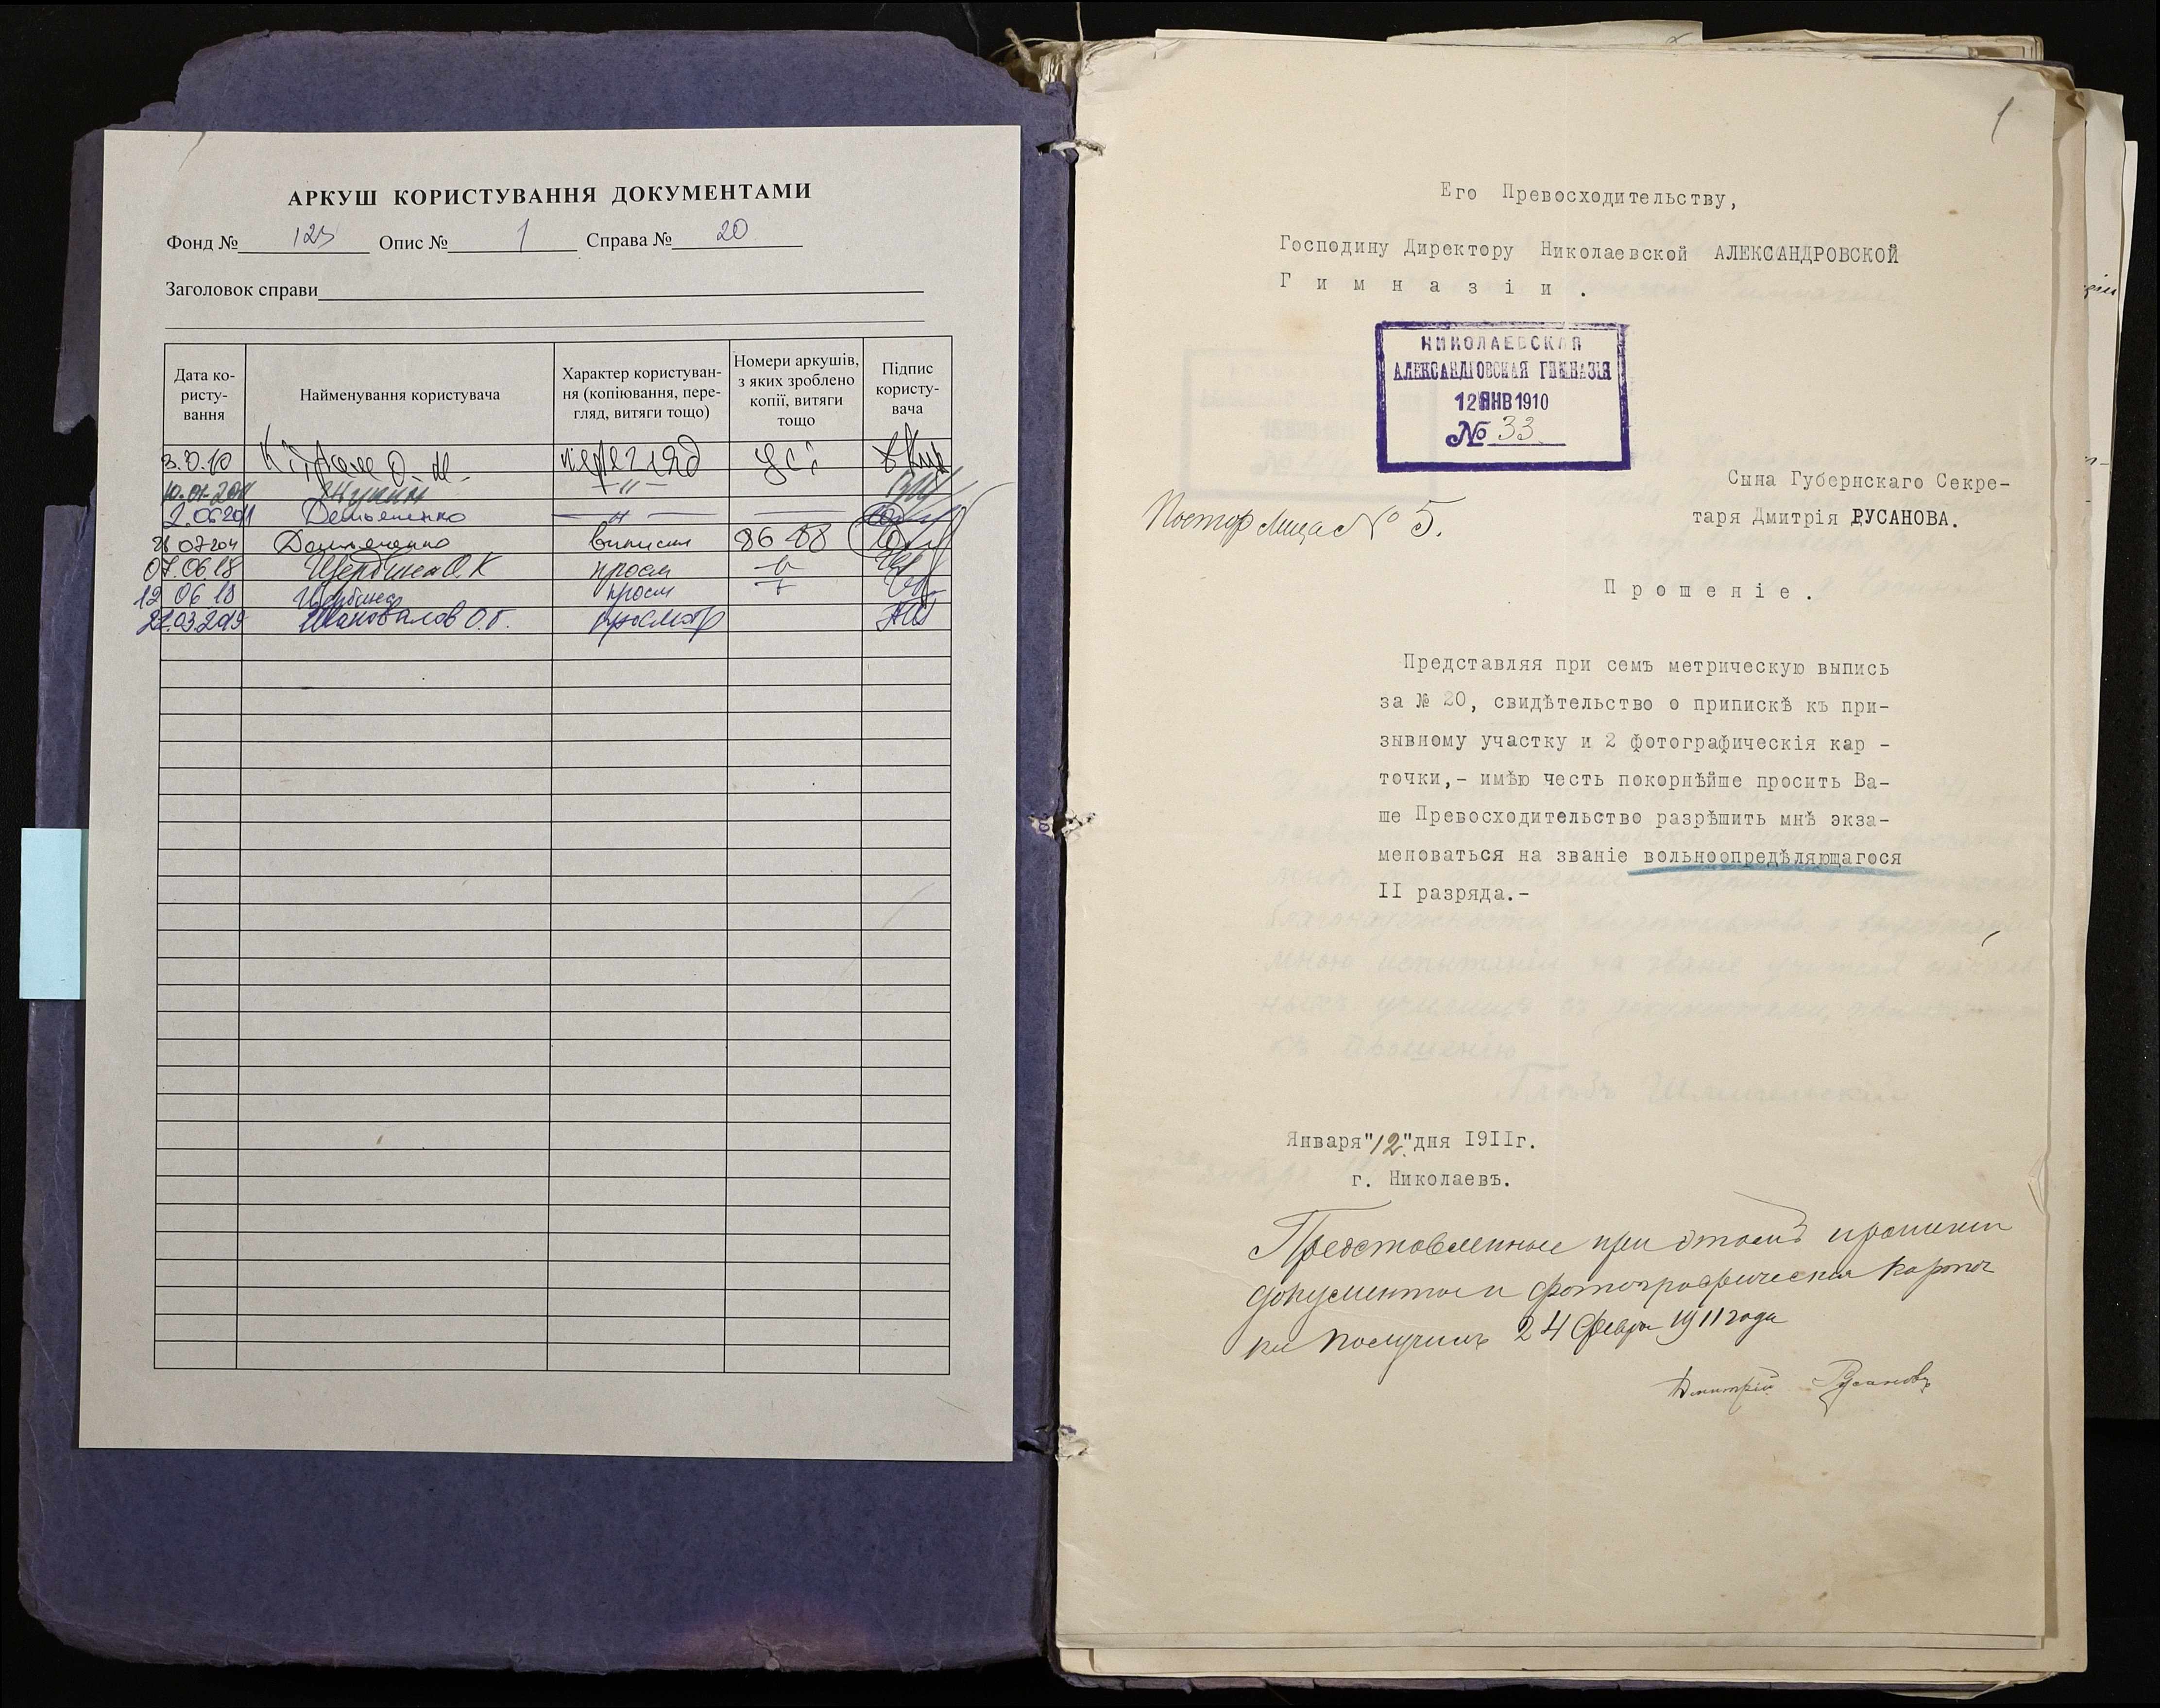 АРКУШ КОРИСТУВАННЯ ДОКУМЕНТАМИ
Фонд № 123 Опис № 1 Справа № 20
Заголовок справи
Дата ко-
ристу-
вання
Найменування користувача
Характер користуван-
ня (копіювання, пере-
гляд, витяги тощо)
Номери аркушів,
з яких зроблено
копії, витяги
тощо
Підпис
користу-
вача
перегляд усі
10.01.2011 -"-
2.06.2011 Демьяненко -"-
Демьяненко виписки 86-88
07.06.18 Щербина О.К просм
12 06 18 Щербина просм
22.03.2019 Шаповалов О.Г. просмотр
1
Его Превосходительству,
Господину Директору Николаевской АЛЕКСАНДРОВСКОЙ
Гимназіи.
НИКОЛАЕВСКАЯ
АЛЕКСАНДРОВСКАЯ ГИМНАЗІЯ
12 ЯНВ 1910
№ 33
Сына Губернскаго Секре-
таря Дмитрія РУСАНОВА.
Постор лица № 5.
Прошеніе.
Представляя при семъ метрическую выпись
за № 20, свидѣтельство о припискѣ къ при-
зывному участку и 2 фотографическія кар -
точки,- имѣю честь покорнѣйше просить Ва-
ше Превосходительство разрѣшить мнѣ экза-
меноваться на званіе вольноопредѣляющагося
II разряда.-
Января "12" дня 1911г.
г. Николаевъ.
Представленные при этомъ прошеніи
документы и фотографическія карточ
ки получилъ 24 февр 1911 года
Дмитрій Русановъ